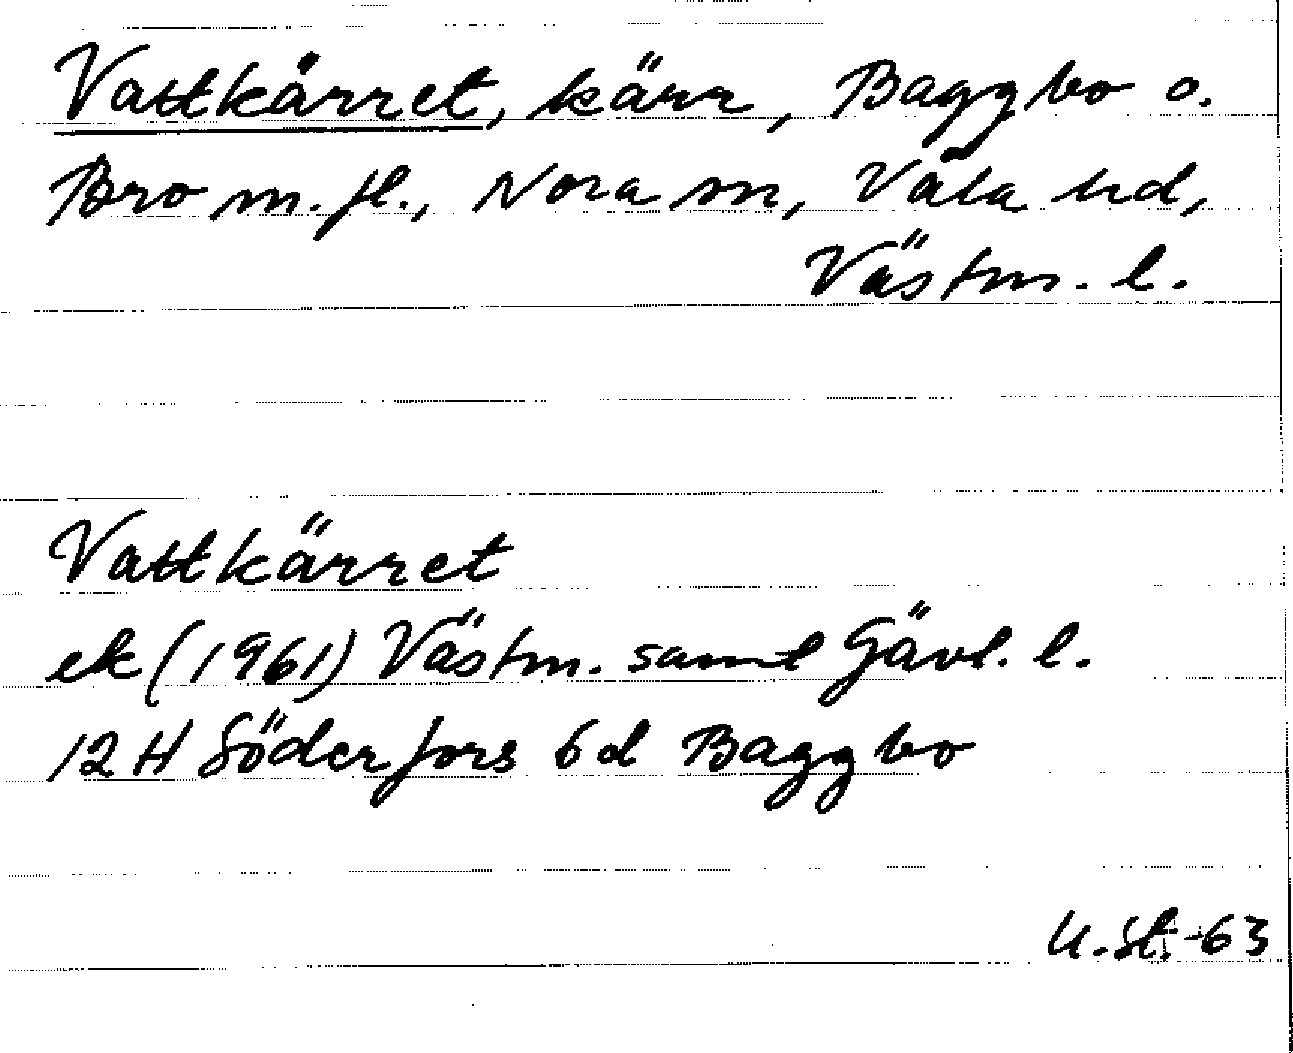 Vattkärret, kärr, Baggbo o.
Bro m.fl., Nora sn, Våla hd,
Västm. l.
Vattkärret
ek (1961) Västm. samt Gävl. l.
12 H Söderfors 6d Baggbo
U.St.-63